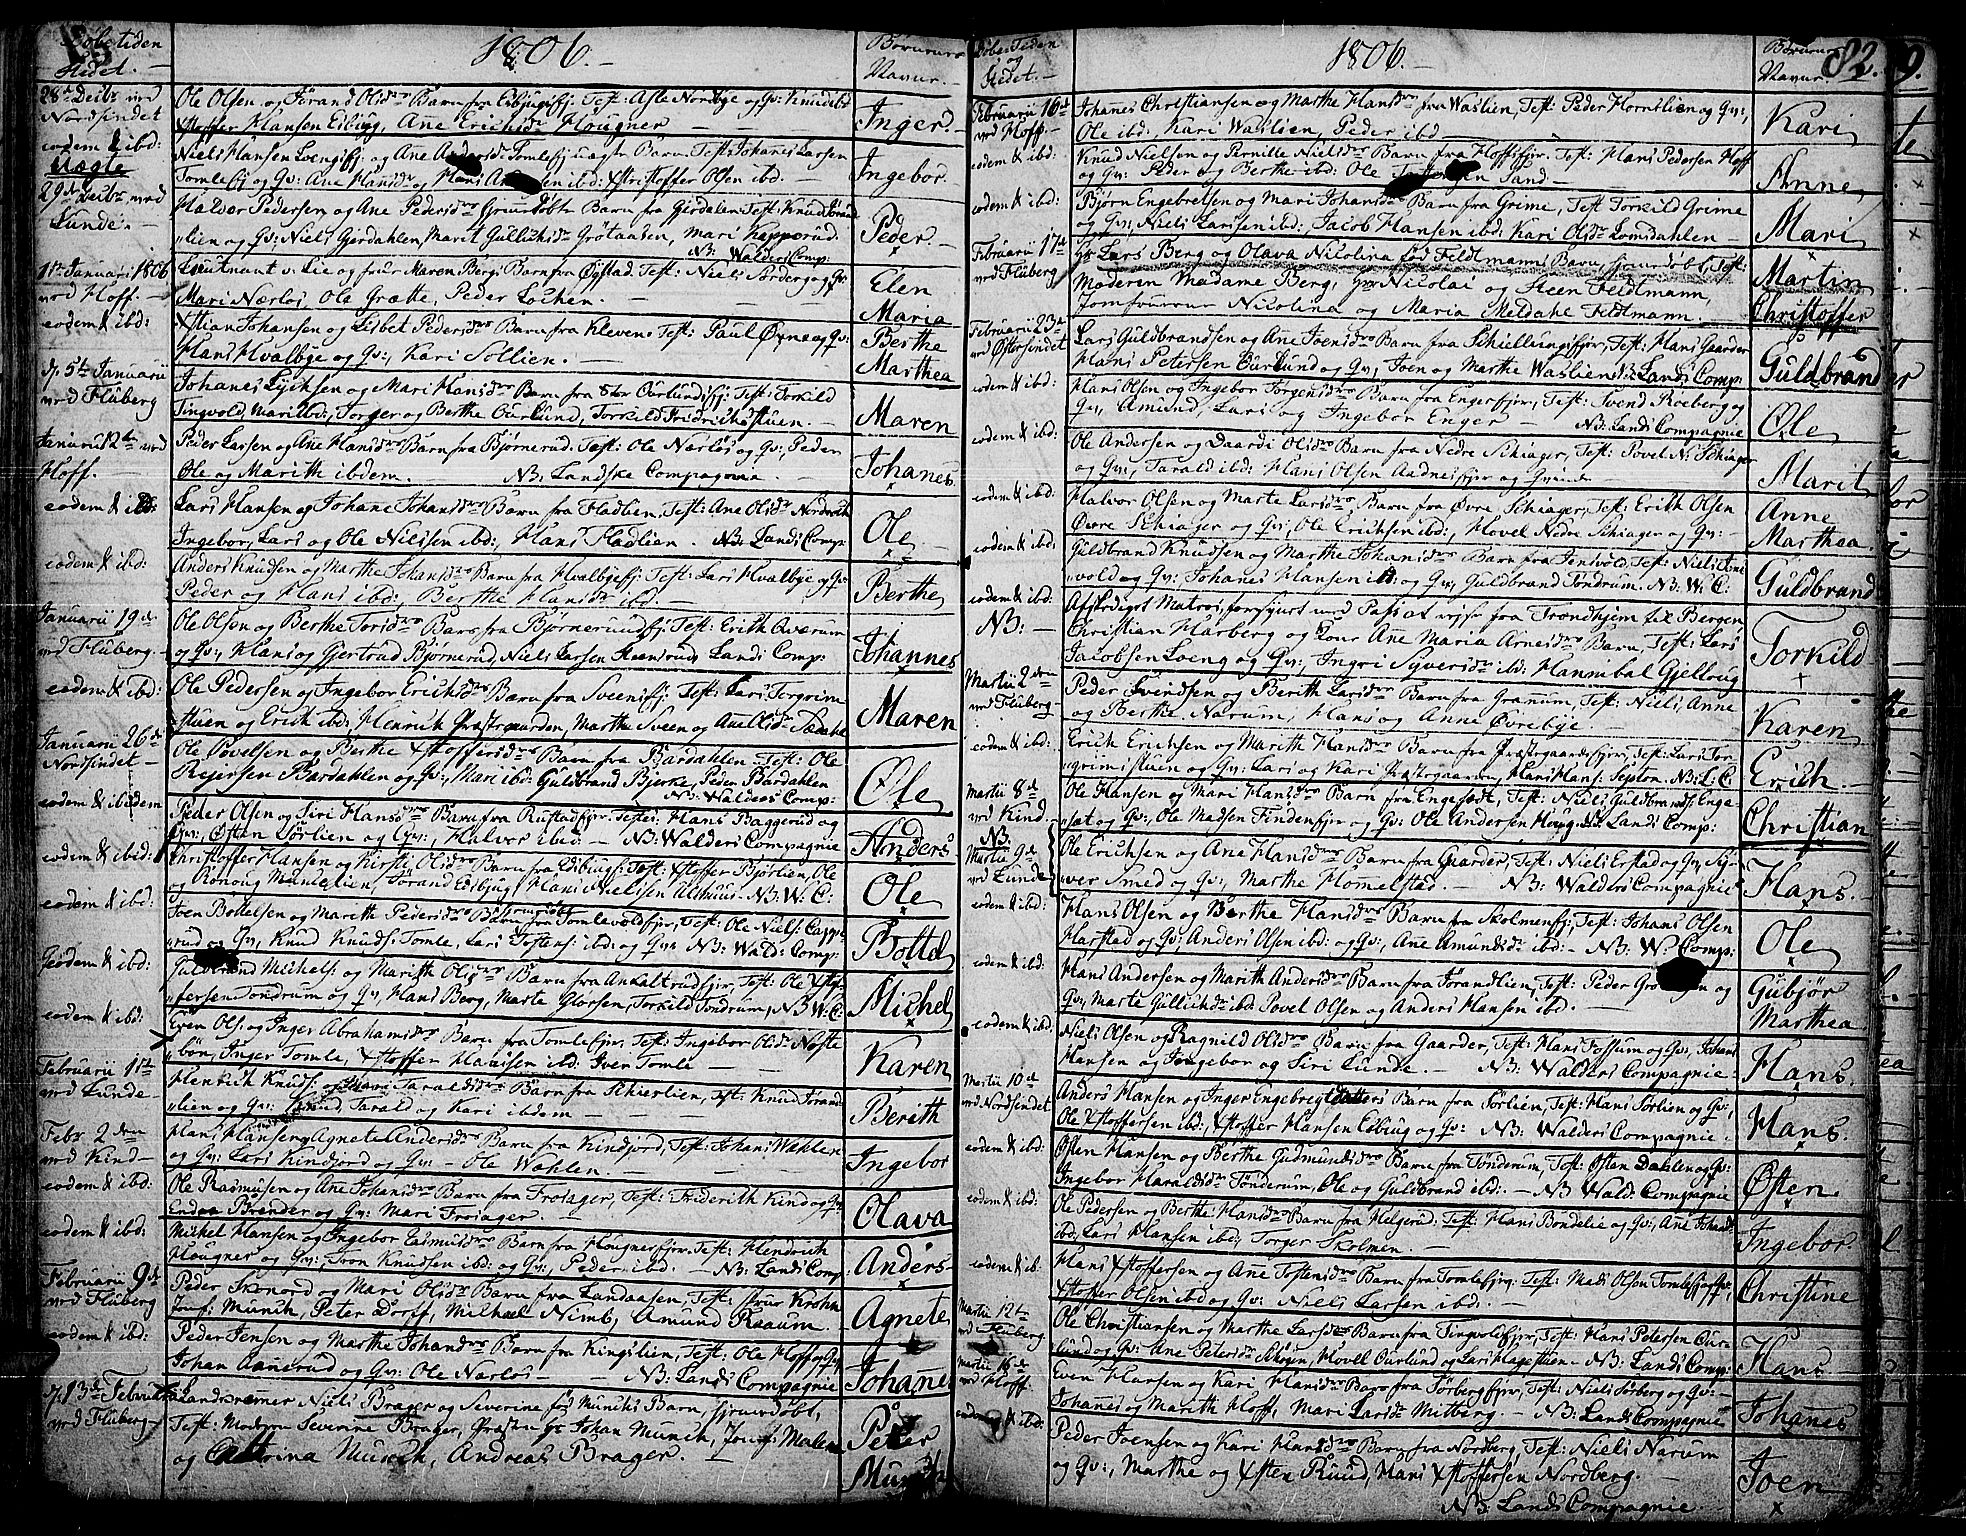 Døbe tiden
Stedet. —
1806. —
Børnenes
Navne. —
28de Decbr ved
Nordsindet
Ole Olsen og Jørand Olsdr Barn fra Edbjugsej: Test: Asle Nordbye og Qv: Knud ibd
Hansen Edbjug, Ane Erichsdr Hougner —
Inger. —
eodem & ibd:
Uægte
Niels Hansen Loengsej og Ane Andersdr Tomlesej uægte Barn. Test: Johanes Larsen
Tomlesej og Qv: Ane Hansdr og Hans ibd: Xstoffer Olsen ibd.
Ingebor —
29de Decbr ved
Lunde. —
Halvor Pedersen og Ane Pedersdr Barn fra Gjerdalen Test: Knud
lien og Qv: Niels Gjerdahlen, Marit Gullichsdr Grøtaasen, Mari Kapperud.
NB: Walders Comp:
Peder. —
1te Januari 1806
ved Hoff. —
Lieutnant v. Lie og frue Maren Berg: Barn fra Øystad. Test: Niels og Qv
Mari Nærlos, Ole Grette, Peder Lochen. —
Elen
Maria
eodem & ibd:
Xstian Johansen og Lisbet Pedersdr Barn fra Kleven: Test: Paul Øxne og Qv:
Hans Hvalbye og Qv:, Kari Sollien. —
Berthe
Marthea
d. 5te Januarii
ved Fluberg
Johanes Lychsen og Mari Hansdr Barn fra Stor Ourlundsej: Test: Torkild
Tingvold, Mari ibd:, Torger og Berthe Ourlund, Torkild Fridrichsstuen. —
Maren
Januarii 12te ved
Hoff. —
Peder Larsen og Ane Hansdr Barn fra Bjørnerud. Test: Ole Nærlos og Qv:, Peder
Ole og Marith ibdem. NB: Landske Compagnie —
Johanes.
eodem & ibd:
Lars Hansen og Johane Johansdr Barn fra Fladlien, Test: Ane Olsdr
Ingebor, Lars og Ole Nielsen ibd:, Hans Fladlien. NB: Lands Comp:
Ole
eodem & ibd:
Anders Knudsen og Marthe Johansdr Barn fra Hvalbyesej: Test: Lars Hvalbye og Qv:
Peder og Hans ibd:, Berthe Hansdr ibd: —
Berthe
Januarii 19de
ved Fluberg. —
Ole Olsen og Berthe Torsdr Barn fra Bjørnerudsej: Test: Erith Qværum
og Qv:, Hans og Gjertrud Bjørnerud, Niels Larsen Steensrud, Lands Comp:
Johannes
eodem & ibd:
Ole Pedersen og Ingebor Erichsdr Barn fra Sveensej: Test: Lars Torgrims
stuen og Erich ibd: Henrich Præstegaarden, Marthe Sveen og Ane Olsdr
Maren
Januarii 26de
Nordsindet —
Ole Povelsen og Berthe Xstoffersdr Barn fra Bardahlen. Test: Ole
Reiersen Bardahlen og Qv:, Mari ibd: Guldbrand Bjerke, Peder Bardahlen
NB: Walders Comp:
Ole
eodem & ibidem
Peder Olsen og Siri Hansdr Barn fra Rustadsejer. Testes: Hans Baggerud og
Qv:, Østen Sørlien og Qv:, Halvor ibid: — NB: Walders Compagnie
Anders
eodem & ibid:
Christoffer Hansen og Kirsti Olsdr Barn fra Edbjugs: Test: Xstoffer Bjørlien, Ole
og Ronoug Munelien, Jørand Edbjug, Hans Nielsen NB: W: C:
Ole
eodem & ibd:
Joen Bottelsen og Marith Pedersdr Barn fra Tomlevoldsejer, Test: Ole Niels: Kappe
rud og Qv, Knud Knuds: Tomle, Lars Tostens: ibd: og Qv: NB: Wald: Comp:
Bottel
eodem & ibd:
Guldbrand Michels: og Marith Olsdr Barn fra Ankaltrudsejer, Test: Ole Xstof
fersen Tondrum og Qv, Hans Berg, Marte Glorsen, Torkild Tondrum, NB W: C:
Michel
eodem & ibd:
Even Ols: og Inger Abrahamsdr Barn fra Tomlesejer, Test: Ingebor Olsdr Nøste
bøn, Inger Tomle, Xstoffer Hansen ibd: Iver Tomle —
Karen
Februarii 1te
ved Lunde —
Henrich Knuds: og Mari Taraldsdr Barn fra Schierlien, Test: Knud Jørand
lien og Qv: Knud, Tarald og Kari ibdem —
Berith
Febr: 2den
ved Kind —
Hans Hansen og Agnete Andersdr Barn fra Kindjord, Test: Johans Wahlen
og Qv: Lars Kindjord og Qv — Ole Wahlen —
Ingebor
eodem & ibd:
Ole Rasmusen og Ane Johansdr Barn fra Froisager, Test: Friderich Kind og Qv:
Endre Brender og Qv: Mari Froisager. —
Olava
eodem & ibd:
Michel Hansen og Ingebor Rasmusdr Barn fra Hougnersejer, Test: Hendrich
Hougner og Qv:, Tron Knudsen ibd: og Qv:, Peder ibd: — NB: Lands Comp:
Anders
Februarii 9de
ved Fluberg
Peder Skonord og Mari Olsdr Barn fra Landaasen, Test: frue Krohn
Jomf: Munch, Peter Dorff, Michael Nimb, Amund Raaum.
Agnete
eodem & ibd:
Peder Jensen og Marthe Johansdr Barn fra Kingslien, Test: Ole Hoff og Qv:
Johan Aanerud og Qv: Ole Narlos — NB: Lands Compagnie
Johane
d. 13de Februar
ved Fluberg —
Landskræmer Niels Brager og Severine fød Munchs Barn, hjemedøbt,
Test: Modern Severine Brager, Præsten Hr Johan Munch, Jomf: Malene
og Cathrina Munch, Andreas Brager. —
Peter
Munch
Døbe Tiden
og
Stedet. —
1806. —
Børnenes
Navne.
82.
Februarii 16de
ved Hoff. —
Johanes Christiansen og Marthe Hansdr fra Waslien, Test: Peder Hornslien og Qv:,
Ole ibd: Kari Waslien, Peder ibd —
Kari
eodem & ibd:
Knud Nielsen og Pernille Nielsdr Barn fra Hoffsejer, Test: Hans Pedersen Hoff
og Qv: Peder og Berthe ibd: Ole Sand —
Anne
eodem & ibd:
Bjørn Engebretsen og Mari Johansdr Barn fra Grime, Test Torkild Grime
og Qv:, Niels Larsen ibd: Jacob Hansen ibd: Kari Olsdr Lomsdahlen —
Mari
Februarii 17de
ved Fluberg
Hr Lars Berg og Olava Nicolina fød Feldtmanns Barn hjemedøbt, Test:
Moderen Madame Berg, Hr Nicolai og Steen Feldtmann
Jomfruerne Nicolina og Maria Meldahl Feldtmann.
Martin
Christoffer
Februarii 23de
ved Østersindet
Lars Guldbrandsen og Ane Joensdr Barn fra Schiellungsejer, Test: Hans Gaarder
Hans Petersen Ourlund og Qv:, Joen og Marthe Waslien NB: Lands Comp:
Guldbrand
eodem & ibd:
Hans Olsen og Ingebor Torgersdr Barn fra Engersejer, Test: Svend Røeberg og
Qv:, Amund, Lars og Ingebor Enger — NB: Lands Compagnie
Ole
eodem & ibd:
Ole Andersen og Daardi Olsdr Barn fra Nedre Schiager, Test: Povel N: Schiager
og Qv:, Tarald ibd: Hans Olsen Aadnesejer og Qvinde —
Marit
eodem & ibd:
Halvor Olsen og Marte Larsdr Barn fra Øvre Schiager, Test: Erich Olsen
Øvre Schiager og Qv:, Ole Erichsen ibd:, Hovel Nedre Schiager og Qv: —
Anne
Marthea
eodem & ibd:
Guldbrand Knudsen og Marthe Johansdr Barn fra Jentvold, Test: Niels Jent
vold og Qv: Johanes Hansen ibd: og Qv:, Guldbrand Tondrum. NB: W: C:
Guldbrand
NB: —
Afskediget Matros, forsynet med Pass at reise fra Trondhjem til Bergen
Christian Harberg og Kone Ane Maria Arnesdr Barn, Test: Lars
Jacobsen Loeng og Qv:, Ingri Syversdr ibd: Hannibal Gjelloug
Torkild
Martii 2den
ved Fluberg —
Peder Svendsen og Berith Larsdr Barn fra Granum, Test: Niels, Anne
og Berthe Narum, Hans og Anne Øvrebye —
Karen
eodem & ibd:
Erich Erichsen og Marith Hansdr Barn fra Præstegaardsejer, Test: Lars Tor
grimsstuen og Qv: Lars og Kari Præstegaarden, Hans Hans: Septon. NB: L: C:
Erich. —
Martii 8de
ved Kind
Ole Hansen og Mari Hansdr Barn fra Engesædt, Test: Niels Guldbrands: Enge
sat og Qv:, Ole Madsen Findensejer og Qv: Ole Andersen Houg NB: Lands Comp:
Christian
NB:
Martii 9de
ved Lunde
Ole Erichsen og Ane Hansdr Barn fra Gaarder, Test: Niels Erstad og Qv, Sy
ver Smed og Qv:, Marthe Hommelstad. — NB: Walders Compagnie
Hans.
eodem & ibd:
Hans Olsen og Berthe Hansdr Barn fra Skolmensej: Test: Johans Olsen
Harstad og Qv: Anders Olsen ibd: og Qv:, Ane Amundsdr ibd: — NB: W: Comp:
Ole
eodem & ibd:
Hans Andersen og Marith Andersdr Barn fra Jørandlien, Test: Peder og
Qv:, Marte Gullichsdr ibd: Povel Olsen og Anders Hansen ibd. —
Gubjør
Marthea
eodem & ibd:
Niels Olsen og Ragnild Olsdr Barn fra Gaarder, Test: Hans Fossum og Qv:, Johans
Hansen og Ingebor og Siri Lunde. — NB: Walders Compagnie
Hans.
Martii 10de
ved Nordsindet
Anders Hansen og Inger Engebregtdatters Barn fra Sørlien, Test: Hans Sørlien og Qv:
Ole Xstoffersen ibd:, Xstoffer Hansen Edbjug og Qv: NB: Walders Compagnie.
Hans.
eodem & ibd:
Østen Hansen og Berthe Gudmundsdr Barn fra Tønderum, Test: Østen Dahlen og Qv:
Ingebor Haraldsdr Tønderum, Ole og Guldbrand ibd: — NB Wald: Compagnie
Østen.
eodem & ibd:
Ole Pedersen og Berthe Hansdr Barn fra Helgerud: Test: Hans Bondelie og Qv:, Ane Johansdr
ibd:, Lars Hansen ibd:, Torger Skolmen. —
Ingebor.
eodem & ib:
Hans Xstoffersen og Ane Tostensdr Barn fra Tomlesejer, Test: Mads Olsen Tomlesej og Qv:,
Xstoffer Olsen ibd og Qv: Niels Larsen ibd: —
Christine
Martii 12te
ved Fluberg.
Ole Christiansen og Marthe Larsdr Barn fra Tingvoldsejer, Test: Hans Petersen Our
lund og Qv: Ane Petersdr Skogen, Hovel Ourlund og Lars Hagestuen — NB: Lands Comp:
Hans
Martii 16de
ved Hoff.
Even Hansen og Kari Hansdr Barn fra Sørbergsejer, Test: Niels Sørberg og Qv: —
Johannes og Marith Hoff, Mari Larsdr Mitberg. — NB: Lands Compagnie
Johannes
eodem & ibd:
Peder Joensen og Kari Hansdr Barn fra Nordberg, Test: Niels Narum
og Qv:, Marthe og Østen Ruud, Hans Xstoffersen Nordberg. —
NB: Lands Compagnie.
Joen